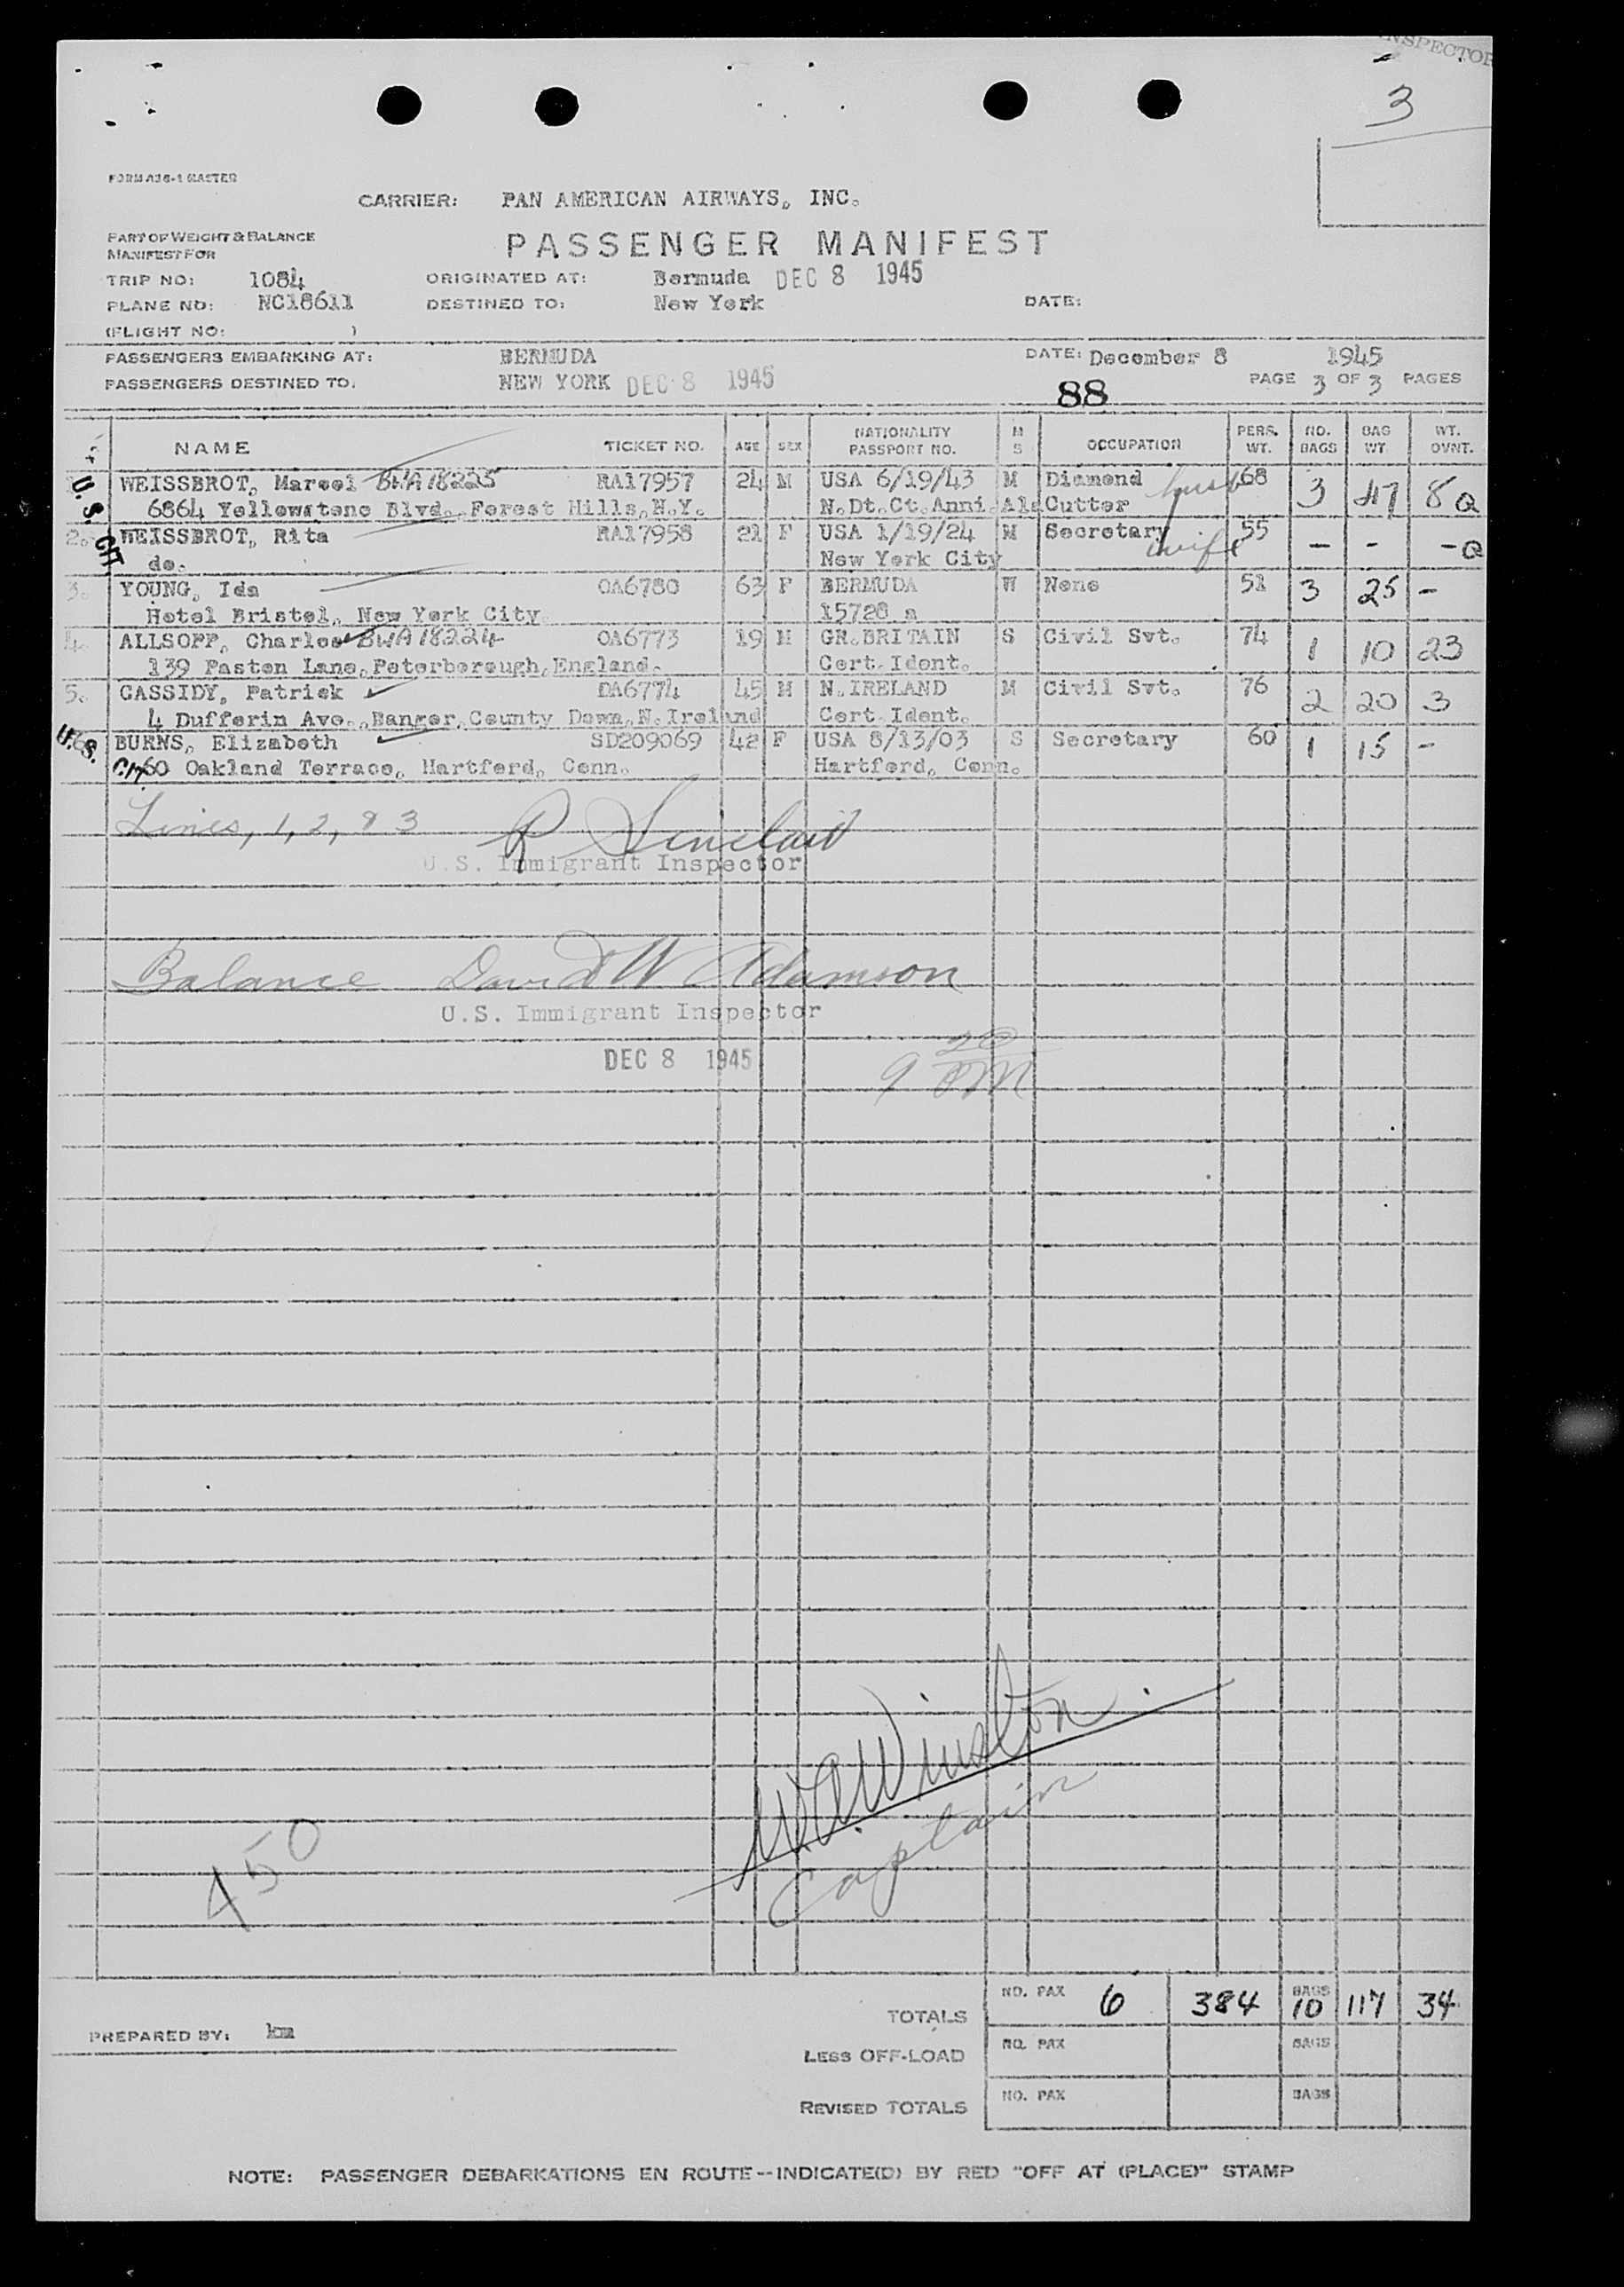 INSPECTOR
3
FORM A36-1 MASTER
CARRIER: PAN AMERICAN AIRWAYS, INC.
PART OF WEIGHT & BALANCE
MANIFEST FOR
PASSENGER MANIFEST
TRIP NO: 1084 ORIGINATED AT: Bermuda DEC 8 1945
PLANE NO: NC18611 DESTINED TO: New York DATE:
(FLIGHT NO: )
PASSENGERS EMBARKING AT: BERMUDA DATE: December 8 1945
PASSENGERS DESTINED TO. NEW YORK DEC 8 1945 88 PAGE 3 OF 3 PAGES
NAME TICKET NO. AGE SEX NATIONALITY PASSPORT NO. M S OCCUPATION PERS. WT. NO. BAGS BAG WT WT. OVNT.
U.S. CIT
WEISSBROT, Marcel BWA18225 RA17957 24 M USA 6/19/43 M Diamond husb 68 3 47 8 Q
6864 Yellowstone Blvd. Forest Hills, N.Y. N.Dt.Ct.Anni.Ala Cutter
2. WEISSBROT, Rita RA17958 21 F USA 1/19/24 M Secretary wife 55 - - - Q
do. New York City
3. YOUNG, Ida OA6780 63 F BERMUDA W None 51 3 25 -
Hotel Bristol, New York City 15728 a
4. ALLSOPP, Charles BWA18224 OA6773 19 M GR.BRITAIN S Civil Svt. 74 1 10 23
139 Paston Lane, Peterborough, England. Cert. Ident.
5. CASSIDY, Patrick OA6774 45 M N.IRELAND M Civil Svt. 76 2 20 3
4 Dufferin Ave., Bangor, County Down, N.Ireland Cert Ident.
U.S. BURNS, Elizabeth SD209069 42 F USA 8/13/03 S Secretary 60 1 15 -
CIT 60 Oakland Terrace, Hartford, Conn. Hartford, Conn.
Lines, 1, 2, & 3 R Sinclair
U.S. Immigrant Inspector
Balance David W Adamson
U.S. Immigrant Inspector
DEC 8 1945 9 20 PM
WA Winston
Captain
450
TOTALS NO. PAX 6 384 BAGS 10 117 34
PREPARED BY: km
LESS OFF-LOAD NO. PAX BAGS
REVISED TOTALS NO. PAX BAGS
NOTE: PASSENGER DEBARKATIONS EN ROUTE--INDICATE(D) BY RED "OFF AT (PLACE)" STAMP